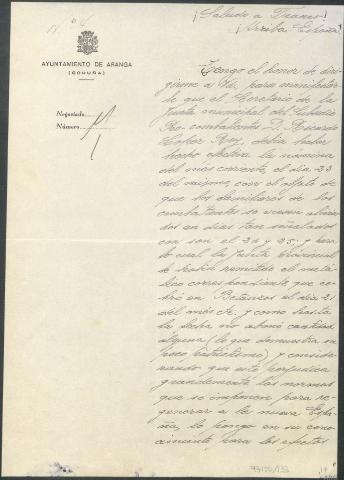 ¡Saludo a Franco!
¡Arriba España!
AYUNTAMIENTO DE ARANGA
(CORUÑA)
Negociado
Número
Tengo el honor de diri-
girme a Vd. para manifestar-
le que el Secretario de la
Junta municipal del Subsidio
Pro-combatientes D. Ricardo
López Rey, debía haber
hecho efectiva la nómina
del mes corriente, el día 23
del mismo, con el objeto de
que los familiares de los
combatientes se vieran alivia-
dos en días tan señalados
con son el 24 y 25; y para
lo cual la Junta Provincial
le había remitido el metá-
lico correspondiente, que co-
bró en Betanzos el día 21
del mes cte. y como hasta
la fecha no abonó cantidad
alguna (lo que demuestra su
poco patriotismo) y conside-
rando que esto perjudica
grandemente las normas
que se imponen para re-
generar a la nueva Espa-
ña, lo pongo en su cono-
cimiento para los efectos